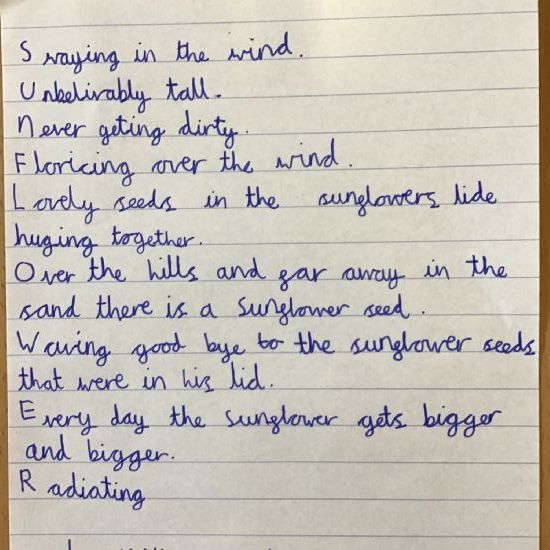 Swaying in the wind.
Unbelivably tall.
Never geting dirty.
Floricing over the wind.
Lovely seeds in the sunglowers lide
huging together.
Over the hills and gar away in the
sand there is a sunglower seed.
Waving good bye to the sunglower seeds
that were in his lid.
Every day the sunglower gets bigger
and bigger.
Radiating